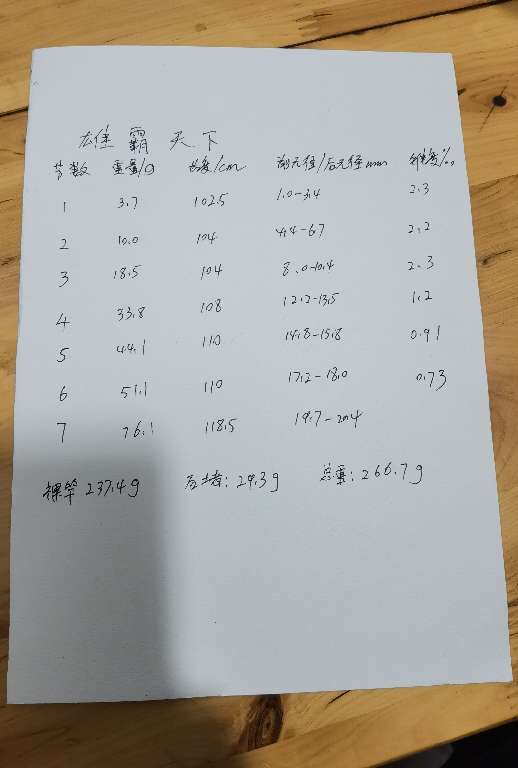 雄霸天下
节数 重量/g 长度/cm 前元径/后元径mm 锥度‰
1 3.7 102.5 1.0-3.4 2.3
2 10.0 104 4.4-6.7 2.2
3 18.5 104 8.0-10.4 2.3
4 33.8 108 12.2-13.5 1.2
5 44.1 110 14.8-15.8 0.91
6 51.1 110 17.2-18.0 0.73
7 76.1 118.5 19.7-20.4
裸竿 237.4g 后堵：29.3g 总重：266.7g